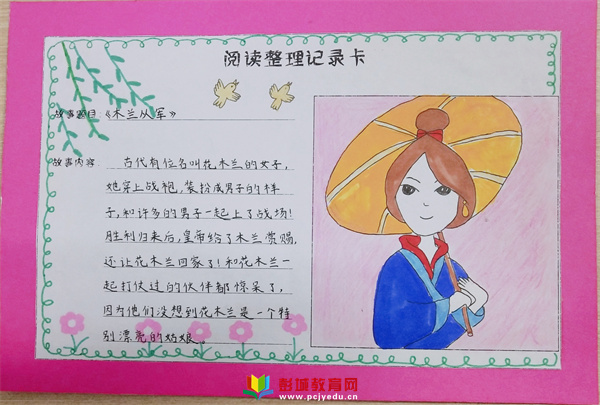 阅读整理记录卡
故事题目:《木兰从军》
故事内容: 古代有位名叫花木兰的女子,
她穿上战袍,装扮成男子的样
子,和许多的男子一起上了战场!
胜利归来后,皇帝给了木兰赏赐,
还让花木兰回家了!和花木兰一
起打仗过的伙伴都惊呆了,
因为他们没想到花木兰是一个特
别漂亮的姑娘。
彭城教育网
www.pcjyedu.cn